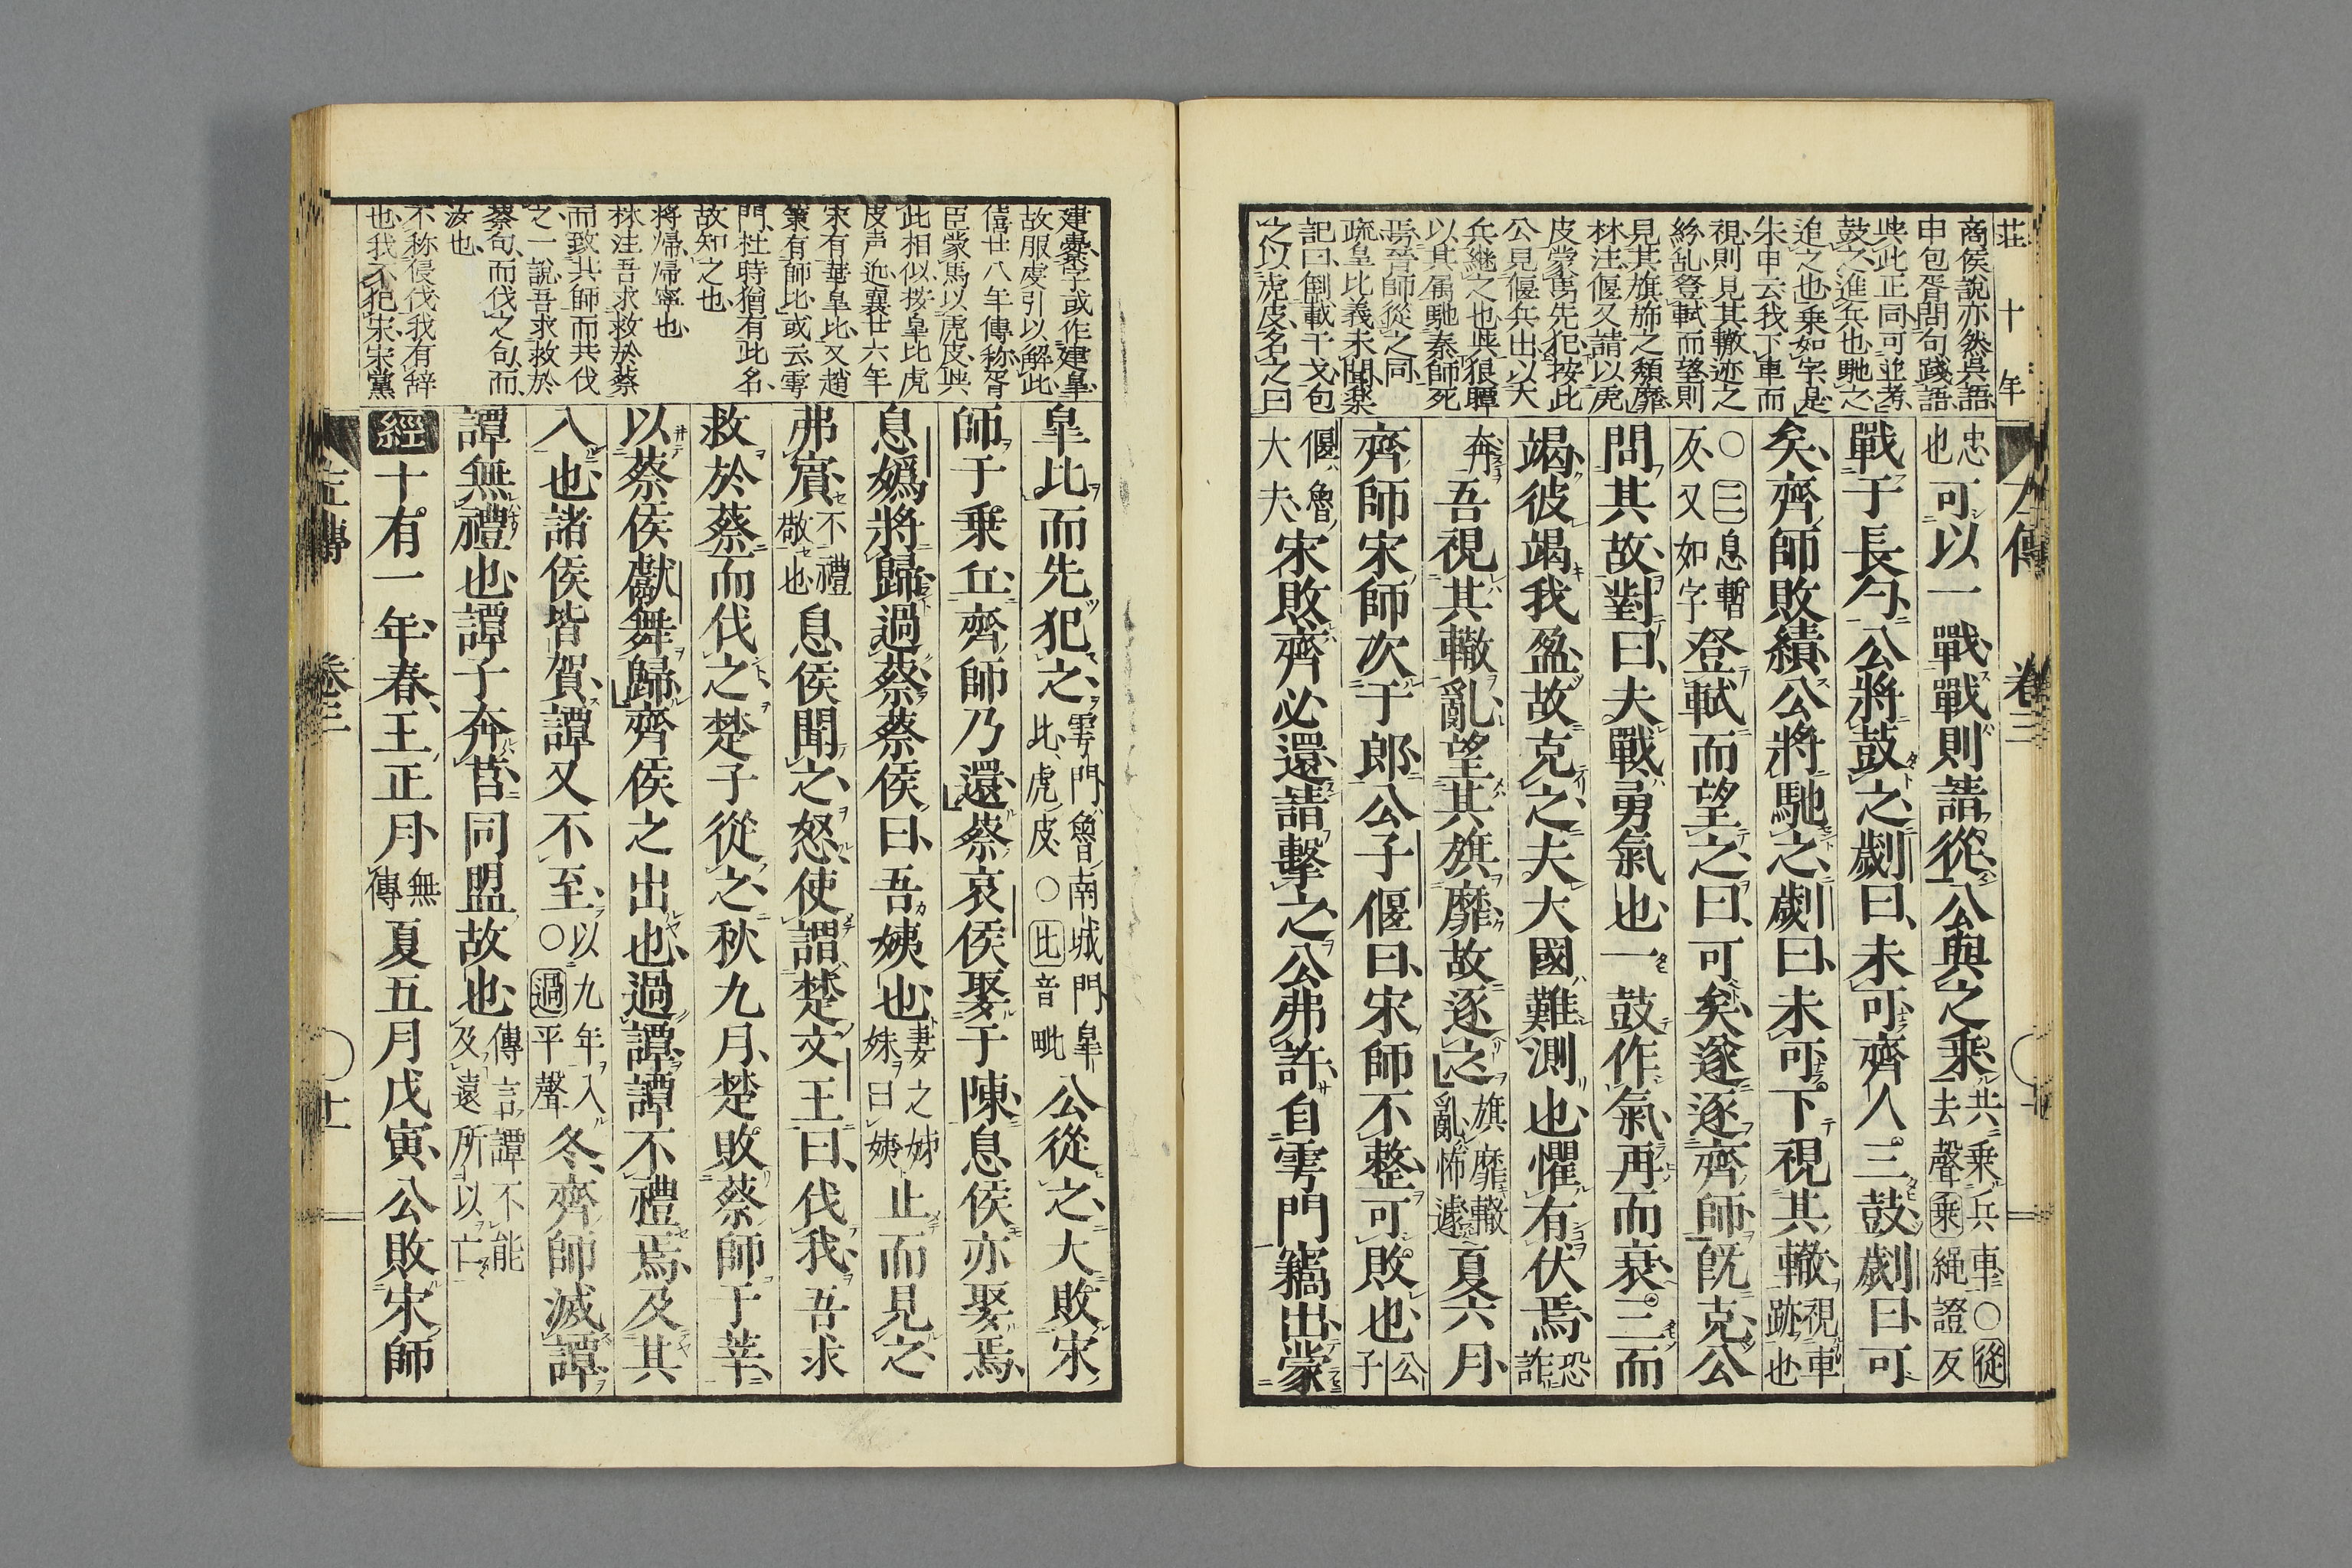 荘十年
商侯說亦然呉語
申包胥問句踐語
與此正同可並考
鼓之進兵也馳之
追之也乗如字是
朱申云我下車而
視則見其轍迹之
紛乱登軾而望則
見其旗旆之頽靡
林注偃又請以虎
皮蒙馬先犯按此
公見偃兵出以大
兵継之也與狼瞫
以其属馳秦師死
焉晉師從之同
疏皐比義未聞樂
記曰倒載干戈包
之以虎皮名之曰
左傳 卷三
忠也可以一戰戰則請從公與之乘共乘兵車○從去聲乘繩證反
戰于長勺公將鼓之劌曰未可齊人三鼓劌曰可
矣齊師敗績公將馳之劌曰未可下視其轍視車跡也
○三息暫反又如字登軾而望之曰可矣遂逐齊師既克公
問其故對曰夫戰勇氣也一鼓作氣再而衰三而
竭彼竭我盈故克之夫大國難測也懼有伏焉恐詐
奔吾視其轍亂望其旗靡故逐之旗靡轍亂怖遽夏六月
齊師宋師次于郎公子偃曰宋師不整可敗也公子
偃魯大夫宋敗齊必還請擊之公弗許自雩門竊出蒙
建櫜字或作建皐
故服虔引以解此
僖廿八年傳称胥
臣蒙馬以虎皮與
此相似按皐比虎
皮声近襄廿六年
宋有華皐比又趙
策有師比或云雩
門杜時猶有此名
故知之也
將帰帰寧也
林注吾求救於蔡
而致其師而共伐
之一說吾求救於
蔡句而伐之句而
汝也
不称侵伐我有辞
也我不犯宋宋黨
皐比而先犯之雩門魯南城門皐比虎皮○比音毗公從之大敗宋
師于乘丘齊師乃還蔡哀侯娶于陳息侯亦娶焉
息媯將歸過蔡蔡侯曰吾姨也妻之姊妹曰姨止而見之
弗賓不禮敬也息侯聞之怒使謂楚文王曰伐我吾求
救於蔡而伐之楚子從之秋九月楚敗蔡師于莘
以蔡侯獻舞歸齊侯之出也過譚譚不禮焉及其
入也諸侯皆賀譚又不至以九年入○過平聲冬齊師滅譚
譚無禮也譚子奔莒同盟故也傳言譚不能及遠所以亡
經十有一年春王正月無傳夏五月戊寅公敗宋師
左傳 卷三 十一